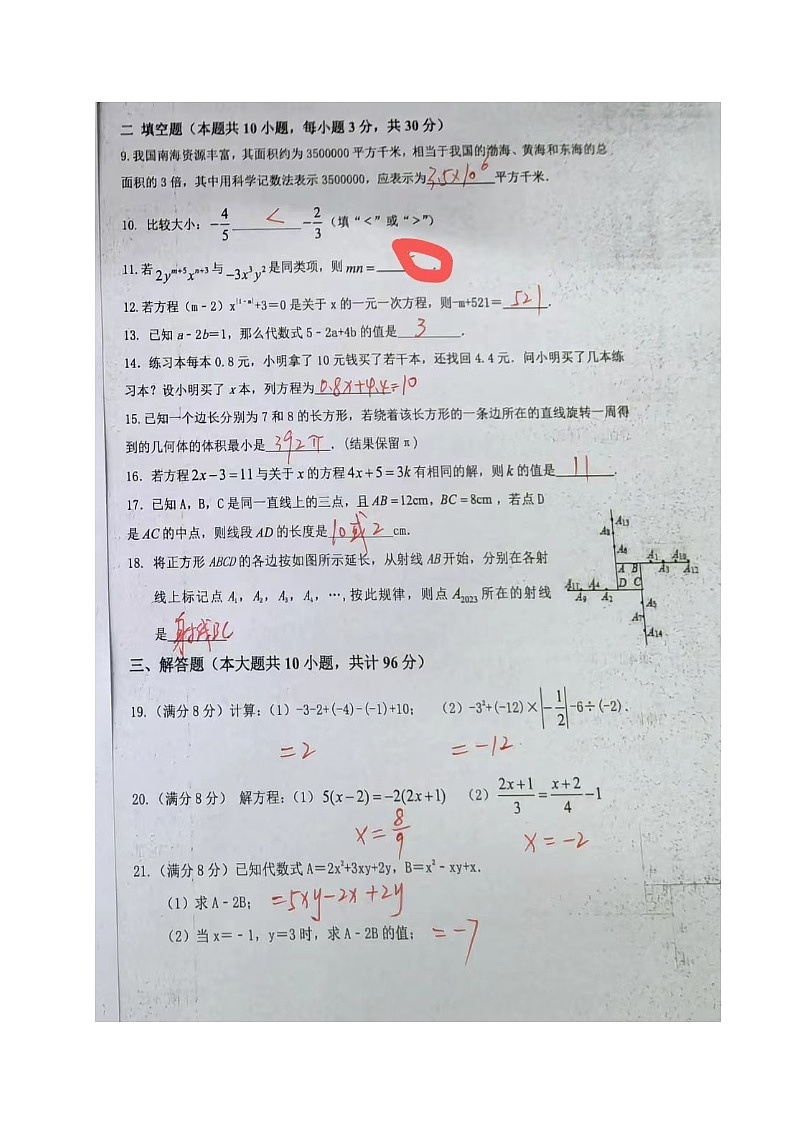 二 填空题（本题共 10 小题，每小题 3 分，共 30 分）
9.我国南海资源丰富，其面积约为 3500000 平方千米，相当于我国的渤海、黄海和东海的总
面积的 3 倍，其中用科学记数法表示 3500000，应表示为3.5×10⁶平方千米．
10. 比较大小：-4/5 < -2/3（填“<”或“>”）
11.若 2yᵐ⁺⁵xⁿ⁺³ 与 -3x³y² 是同类项，则 mn＝
12.若方程（m﹣2）x^|1-m|+3＝0 是关于 x 的一元一次方程，则-m+521＝521．
13. 已知 a﹣2b＝1，那么代数式 5﹣2a+4b 的值是 3．
14．练习本每本 0.8 元，小明拿了 10 元钱买了若干本，还找回 4.4 元．问小明买了几本练
习本？设小明买了 x 本，列方程为0.8x+4.4=10
15.已知一个边长分别为 7 和 8 的长方形，若绕着该长方形的一条边所在的直线旋转一周得
到的几何体的体积最小是 392π．(结果保留π)
16．若方程 2x－3＝11 与关于 x 的方程 4x＋5＝3k 有相同的解，则 k 的值是 11．
17．已知 A，B，C 是同一直线上的三点，且 AB＝12cm，BC＝8cm，若点 D
是 AC 的中点，则线段 AD 的长度是10或2 cm．
18．将正方形 ABCD 的各边按如图所示延长，从射线 AB 开始，分别在各射
线上标记点 A₁，A₂，A₃，A₄，…，按此规律，则点 A₂₀₂₃ 所在的射线
是射线BC
A₁₃
A₈
A₆
A B A₁ A₁₀
A₃ A₁₂
A₁₁ A₄ D C
A₉ A₂
A₅
A₇
A₁₄
三、解答题（本大题共 10 小题，共计 96 分）
19.（满分 8 分）计算：（1）-3-2+(-4)-(-1)+10； （2）-3²+(-12)×|-1/2|-6÷(-2)．
=2 =-12
20.（满分 8 分） 解方程：（1）5(x－2)＝－2(2x＋1) （2）(2x+1)/3＝(x+2)/4－1
x=8/9 x=-2
21.（满分 8 分）已知代数式 A＝2x²+3xy+2y，B＝x²﹣xy+x．
（1）求 A﹣2B； =5xy-2x+2y
（2）当 x＝﹣1，y＝3 时，求 A﹣2B 的值； =-7